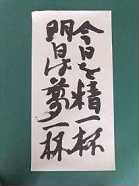 今日を精一杯
明日は夢一杯